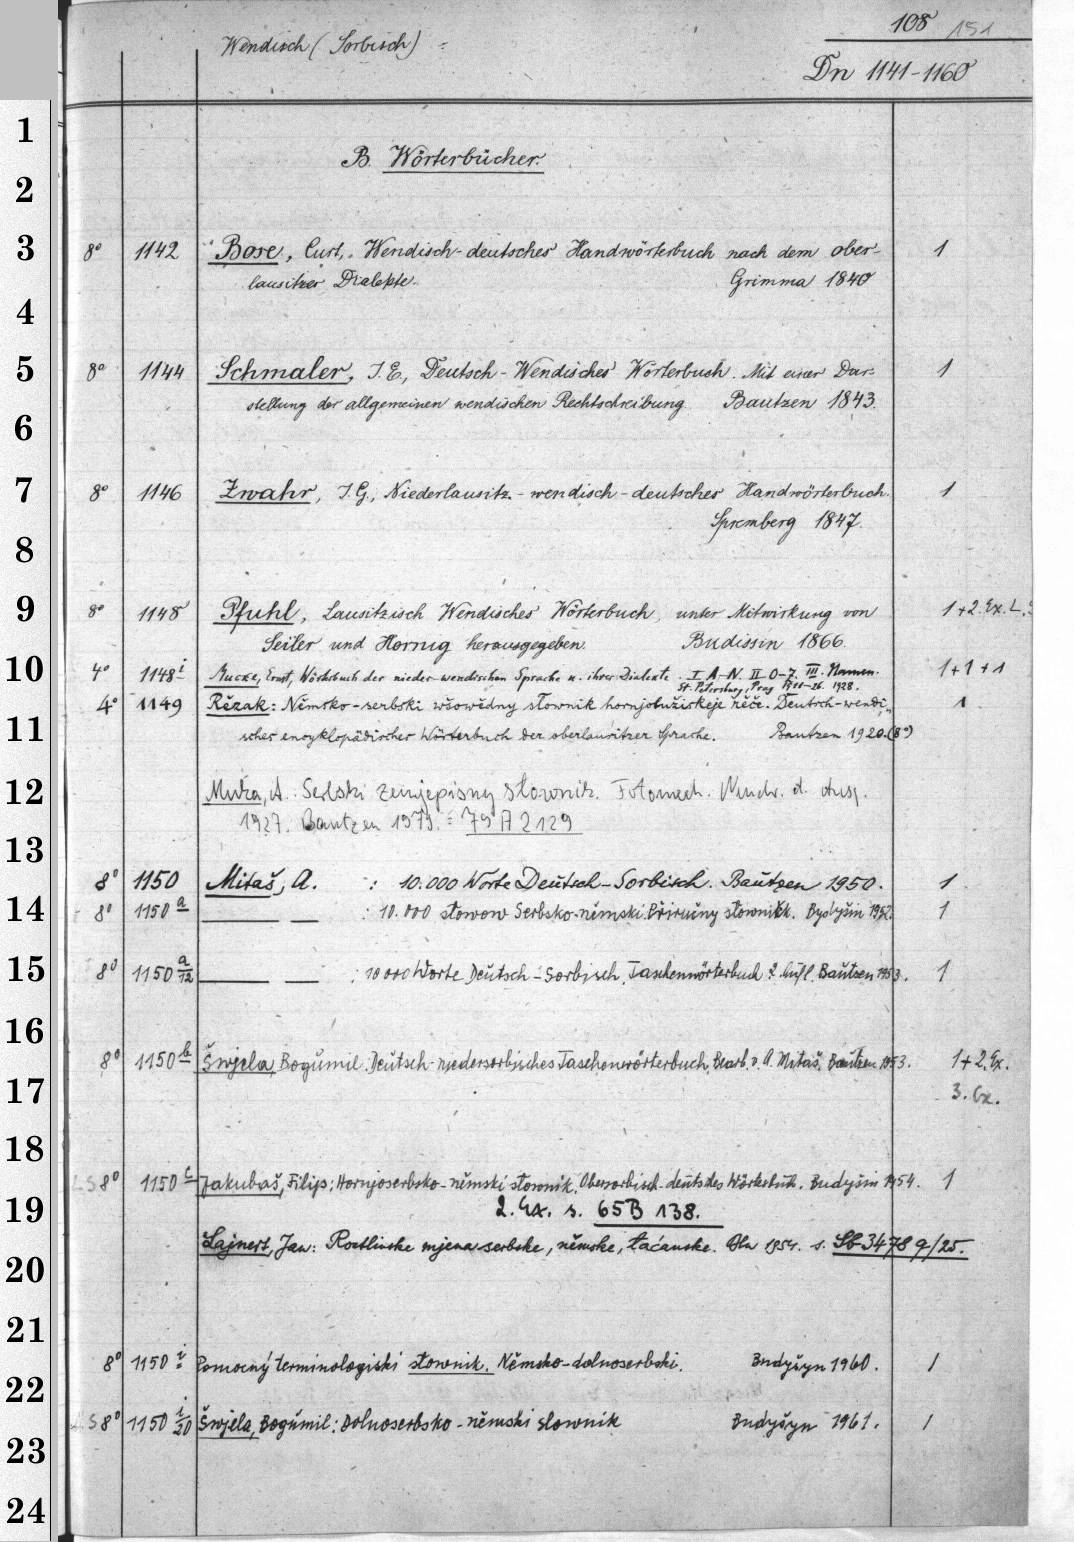 108 151
Wendisch (Sorbisch)
Dn 1141-1160
1
B. Wörterbücher.
2
3 8° 1142 Bose, Curt, Wendisch-deutsches Handwörterbuch nach dem ober- 1
lausitzer Dialekte. Grimma 1840
4
5 8° 1144 Schmaler, J. E., Deutsch-Wendisches Wörterbuch. Mit einer Dar- 1
stellung der allgemeinen wendischen Rechtschreibung. Bautzen 1843.
6
7 8° 1146 Zwahr, J. G., Niederlausitz.-wendisch-deutsches Handwörterbuch. 1
Spremberg 1847.
8
9 8° 1148 Pfuhl, Lausitzisch Wendisches Wörterbuch, unter Mitwirkung von 1+2. Ex. L.
Seiler und Hornig herausgegeben. Budissin 1866.
10 4° 1148 i Mucke, Ernst, Wörterbuch der nieder-wendischen Sprache u. ihrer Dialekte. I A-N. II O-Z. III. Namen. 1+1+1
St. Petersburg, Prag 1911-26. 1928.
4° 1149 Rězak: Němsko-serbski wšowědny słownik hornjołužiskeje rěče. Deutsch-wendi- 1
11 sches encyklopädisches Wörterbuch der oberlausitzer Sprache. Bautzen 1920. (8°)
12 Muka, A.: Serbski zemjepisny słownik. Fotomech. Neudr. d. Ausg.
1927. Bautzen 1979. = 79 A 2129
13
8° 1150 Mitaš, A. : 10.000 Worte Deutsch-Sorbisch. Bautzen 1950. 1
14 8° 1150 a — — : 10.000 słowow Serbsko-němski Přiručny słownik. Budyšin 1952. 1
15 8° 1150 a/12 — — : 10000 Worte Deutsch-Sorbisch. Taschenwörterbuch 2. Aufl. Bautzen 1953. 1
16
8° 1150 b Šwjela, Bogumil: Deutsch-niedersorbisches Taschenwörterbuch. Bearb. v. A. Mitaš. Bautzen 1953. 1+2. Ex.
17 3. Ex.
18
LS 8° 1150 c Jakubaš, Filip: Hornjoserbsko-němski słownik. Obersorbisch-deutsches Wörterbuch. Budyšin 1954. 1
19 2. Ex. s. 65 B 138.
Lajnert, Jan: Rostlinske mjena serbske, němske, łaćanske. Bln 1954. s. Sb 3478 q/25.
20
21
8° 1150 i Pomocny terminologiski słownik. Němsko-dolnoserbski. Budyšyn 1960. 1
22
LS 8° 1150 i/20 Šwjela, Bogumil: Dolnoserbsko-němski słownik Budyšyn 1961. 1
23
24